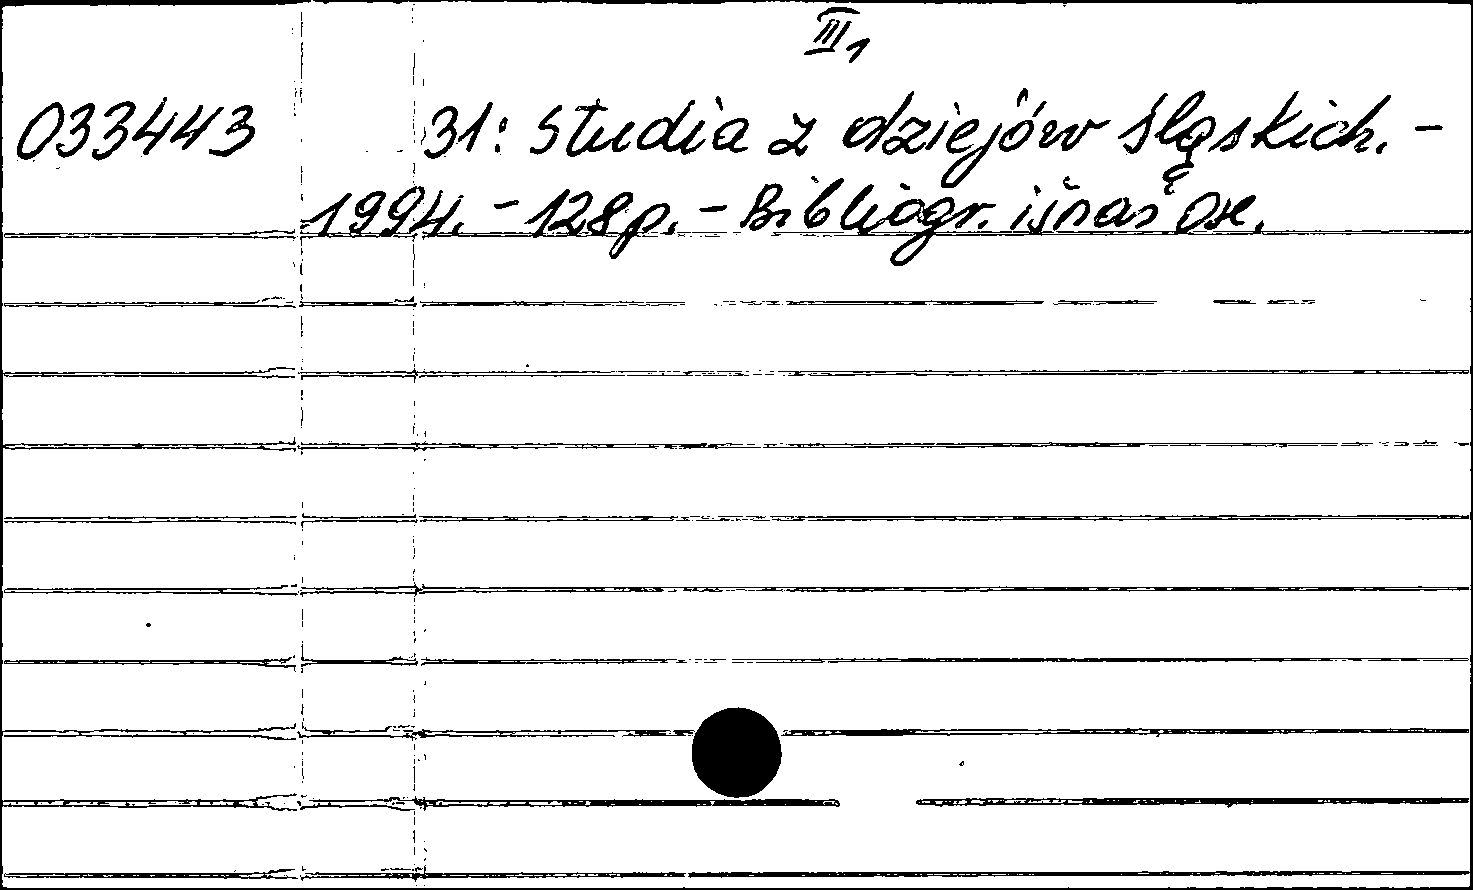 III,
033443 31: Studia z dziejów śląskich. -
1994. - 128 p. - Bibliogr. išnašose.